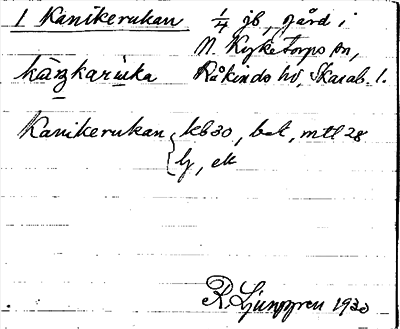 1 Kanikerukan 1/4 jb, gård i
N. Kyrketorps sn,
Kåkinds hd, Skarab. l.
kàŋkarùka
Kanikerukan { kb 30, bet, mtl 28
lj, ek
R. Ljunggren 1930